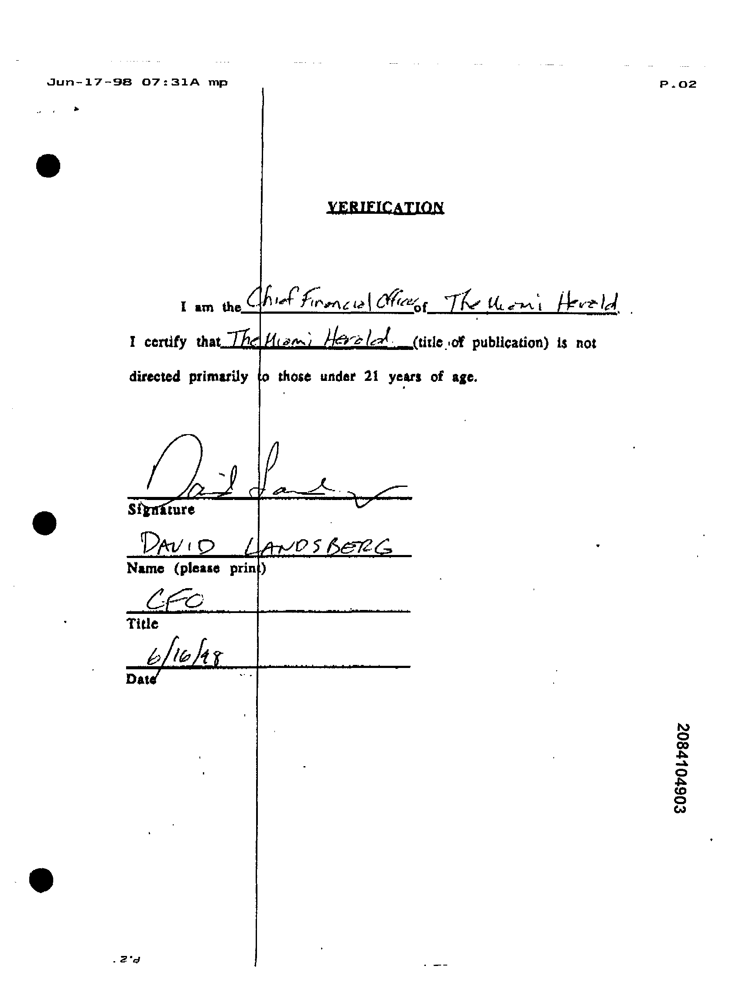 Jun-17-98 07:31A mp P.02
VERIFICATION
I am the Chief Financial Officer of The Miami Herald.
I certify that The Miami Herald (title of publication) is not
directed primarily to those under 21 years of age.
David Land
Signature
DAVID LANDSBERG
Name (please print)
CFO
Title
6/16/98
Date
2084104903
P.2